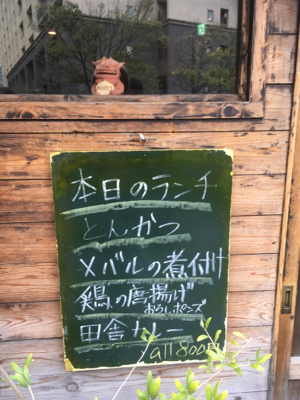 本日のランチ
とんかつ
メバルの煮付け
鶏の唐揚げ
おろしポンズ
田舎カレー
all 800円